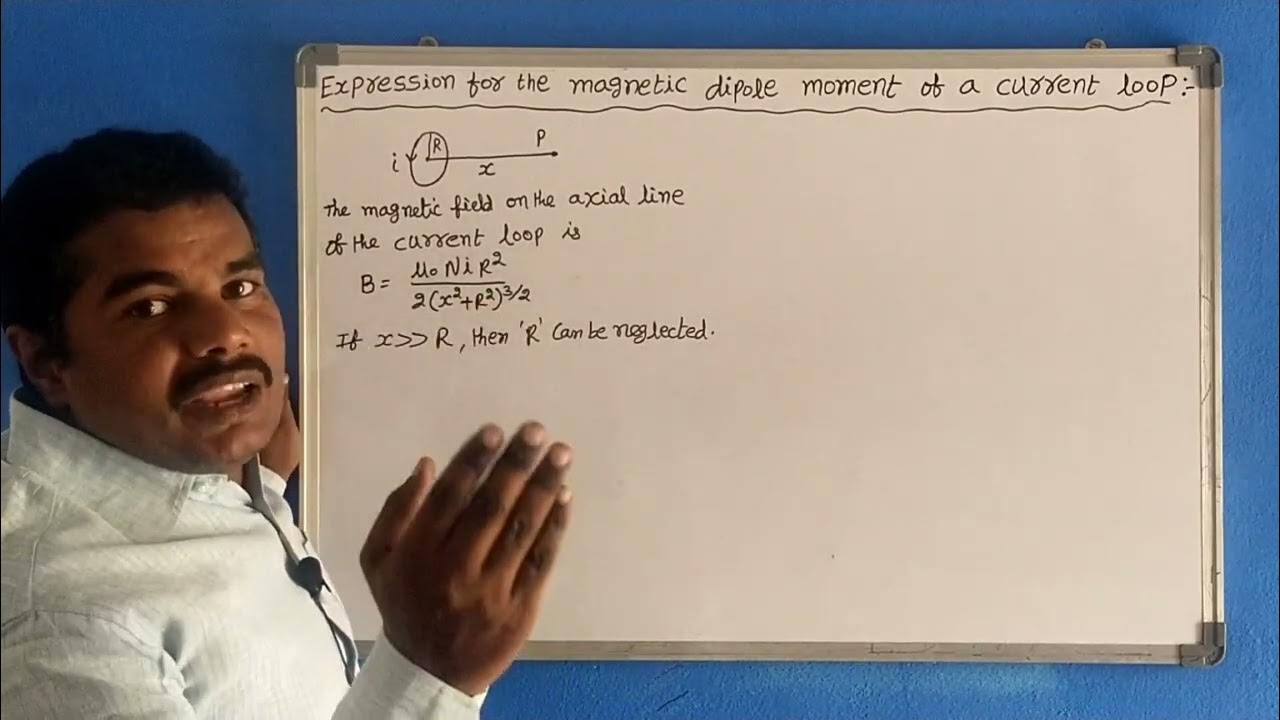 Expression for the magnetic dipole moment of a current loop:-
R
P
i
x
The magnetic field on the axial line
of the current loop is
B = μ₀NiR² / 2(x²+R²)^3/2
If x>>R, then 'R' can be neglected.